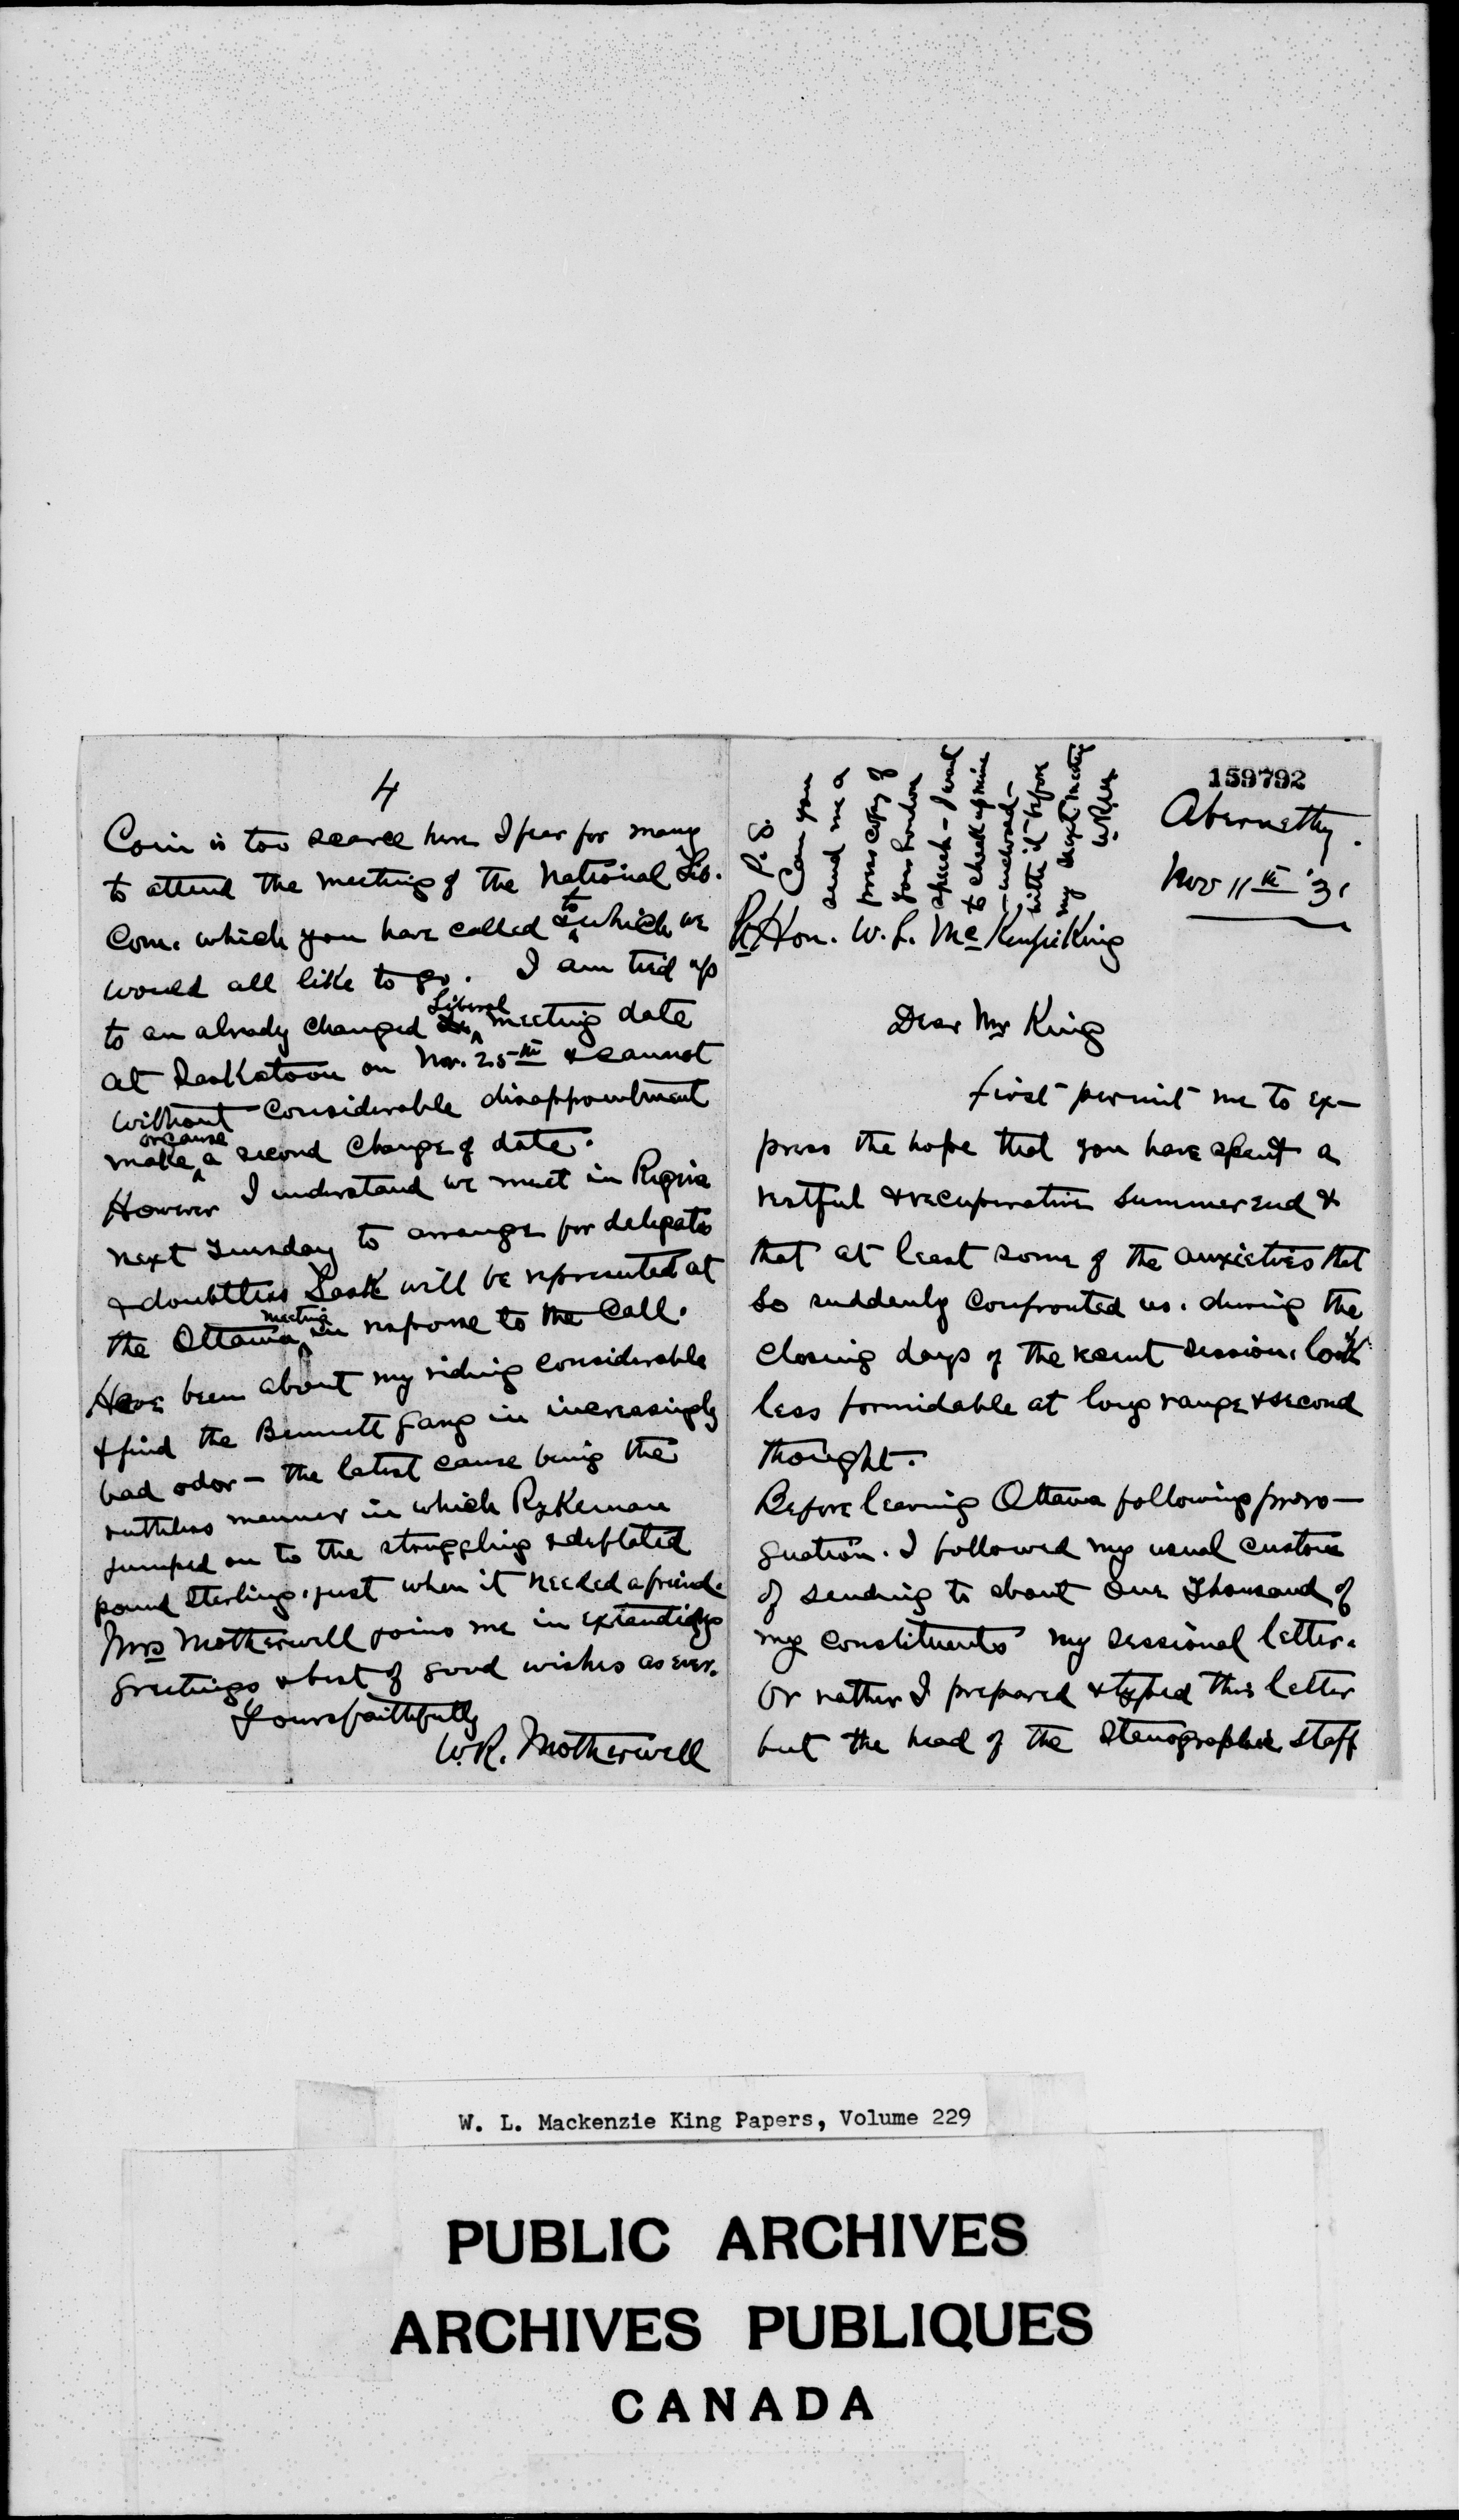 4
Coin is too scarce here I fear for many
to attend the meeting of the National Lib.
Com. which you have called & to which we
would all like to go. I am tied up
to an already changed Liberal meeting date
at Saskatoon on Nov. 25th & cannot
without considerable disappointment
make or cause a second change of date.
However I understand we meet in Regina
next Tuesday to arrange for delegates
& doubtless Sask will be represented at
the Ottawa meeting in response to the call.
Have been about my riding considerable
& find the Bennett gang in increasingly
bad odor – the latest cause being the
ruthless manner in which Rykeman
jumped on to the struggling & deflated
pound sterling, just when it needed a friend.
Mrs Motherwell joins me in extending
greetings & best of good wishes as ever.
Yours faithfully
W.R. Motherwell
159792
Abernethy.
Nov 11th '31
P.S.
Can you
send me a
press copy of
your London
speech – I want
to check up mine
with it before
my next meeting
W.R.M.
Rt Hon. W. L. McKenzie King
Dear Mr King
First permit me to ex-
press the hope that you have spent a
restful & recuperative summer end &
that at least some of the anxieties that
so suddenly confronted us. during the
closing days of the recent session, look
less formidable at long range & second
thought.
Before leaving Ottawa following proro-
guation. I followed my usual custom
of sending to about One Thousand of
my constituents my sessional letter.
Or rather I prepared & typed this letter
but the head of the stenographic staff
W. L. Mackenzie King Papers, Volume 229
PUBLIC ARCHIVES
ARCHIVES PUBLIQUES
CANADA